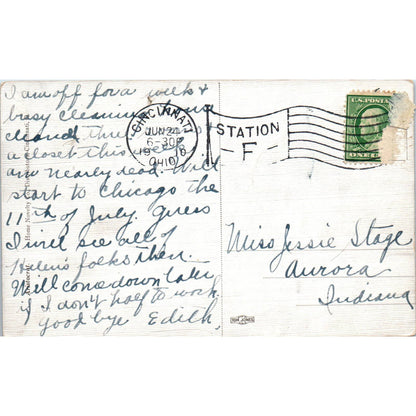 I am off for a week &
busy cleaning house
cleaned three
a closet this week
am nearly dead. Will
start to Chicago the
11th of July. Guess
I will see all of
Helen's folks then.
Will come down later
if I don't half to work.
good bye Edith.
CINCINNATI
JUN 24
6-30P
OHIO
STATION
F
U.S. POSTAGE
ONE
Miss Jessie Stage
Aurora
Indiana